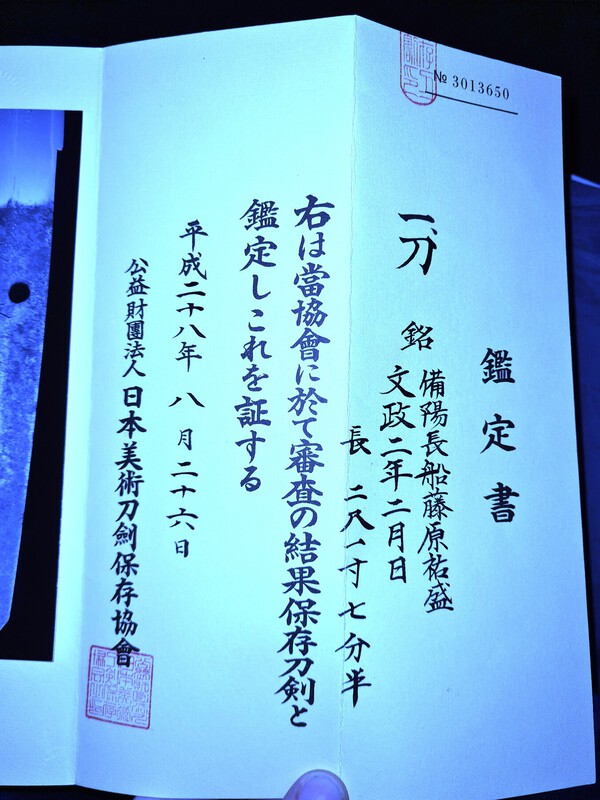 № 3013650
鑑定書
一、刀
銘 備陽長船藤原祐盛
文政二年二月日
長 二尺一寸七分半
右は當協會に於て審査の結果保存刀剣と
鑑定しこれを証する
平成二十八年 八月二十六日
公益財團法人 日本美術刀劍保存協會